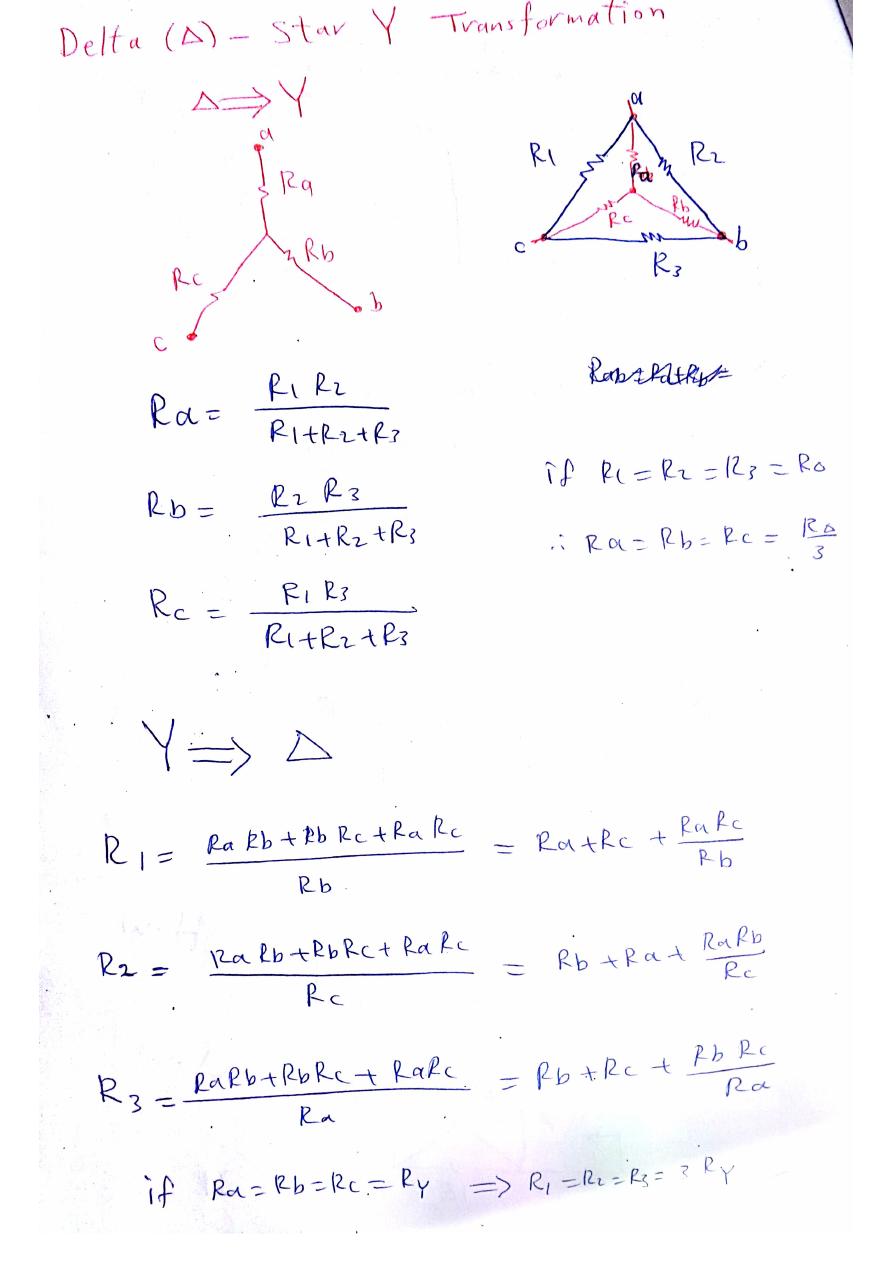 Delta (Δ) - Star Y Transformation
Δ ⟹ Y
a
Ra
Rb
Rc
b
c
a
R1
R2
Ra
Rb
Rc
c
b
R3
Ra = R1 R2 / R1+R2+R3
Rb = R2 R3 / R1+R2+R3
Rc = R1 R3 / R1+R2+R3
if R1 = R2 = R3 = RΔ
∴ Ra = Rb = Rc = RΔ / 3
Y ⟹ Δ
R1 = Ra Rb + Rb Rc + Ra Rc / Rb = Ra + Rc + Ra Rc / Rb
R2 = Ra Rb + Rb Rc + Ra Rc / Rc = Rb + Ra + Ra Rb / Rc
R3 = Ra Rb + Rb Rc + Ra Rc / Ra = Rb + Rc + Rb Rc / Ra
if Ra = Rb = Rc = RY ⟹ R1 = R2 = R3 = 3 RY